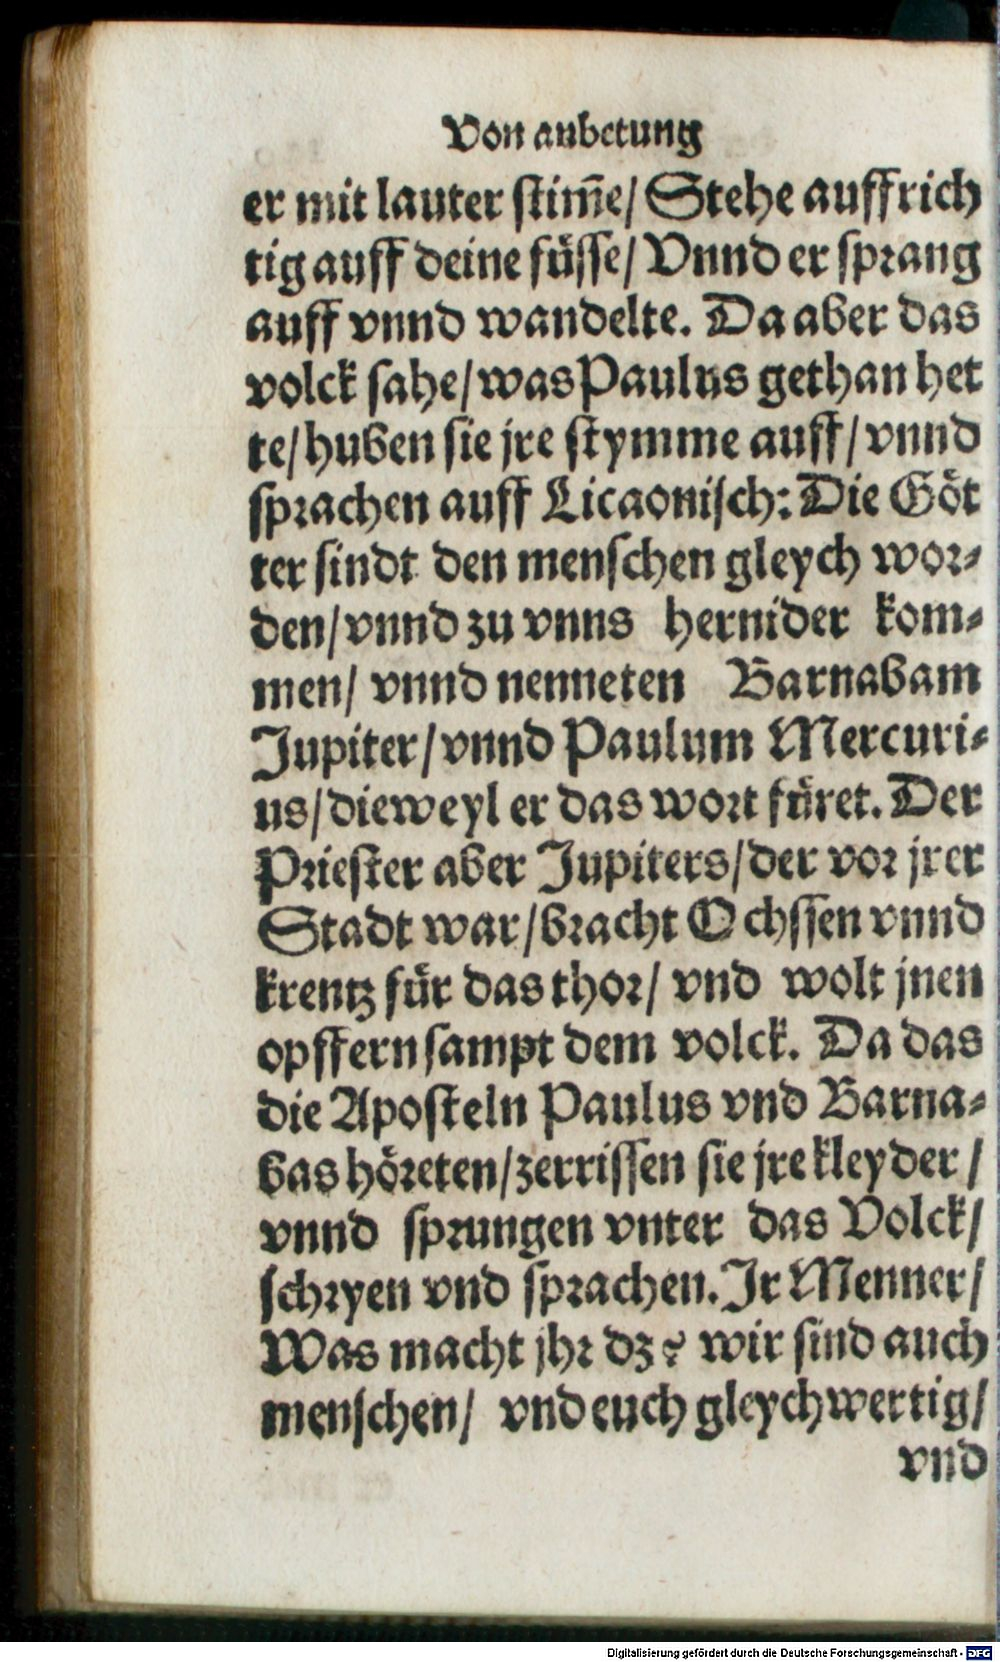 Von anbetung
er mit lauter ſtim̄e/ Stehe auffrich
tig auff deine füſſe/ Vnnd er ſprang
auff vnnd wandelte. Da aber das
volck ſahe/ was Paulus gethan het
te/ huben ſie jre ſtymme auff/ vnnd
ſprachen auff Licaoniſch: Die Göt
ter ſindt den menſchen gleych wor⸗
den/ vnnd zu vnns hernider kom⸗
men/ vnnd nenneten Barnabam
Jupiter/ vnnd Paulum Mercuri⸗
us/ dieweyl er das wort füret. Der
Prieſter aber Jupiters/ der vor jrer
Stadt war/ bracht Ochſſen vnnd
krentz für das thor/ vnd wolt jnen
opffern ſampt dem volck. Da das
die Apoſteln Paulus vnd Barna⸗
bas höreten/ zerriſſen ſie jre kleyder/
vnnd ſprungen vnter das Volck/
ſchryen vnd ſprachen. Jr Menner/
Was macht jhr dz? wir ſind auch
menſchen/ vnd euch gleychwertig/
vnd
Digitalisierung gefördert durch die Deutsche Forschungsgemeinschaft - DFG